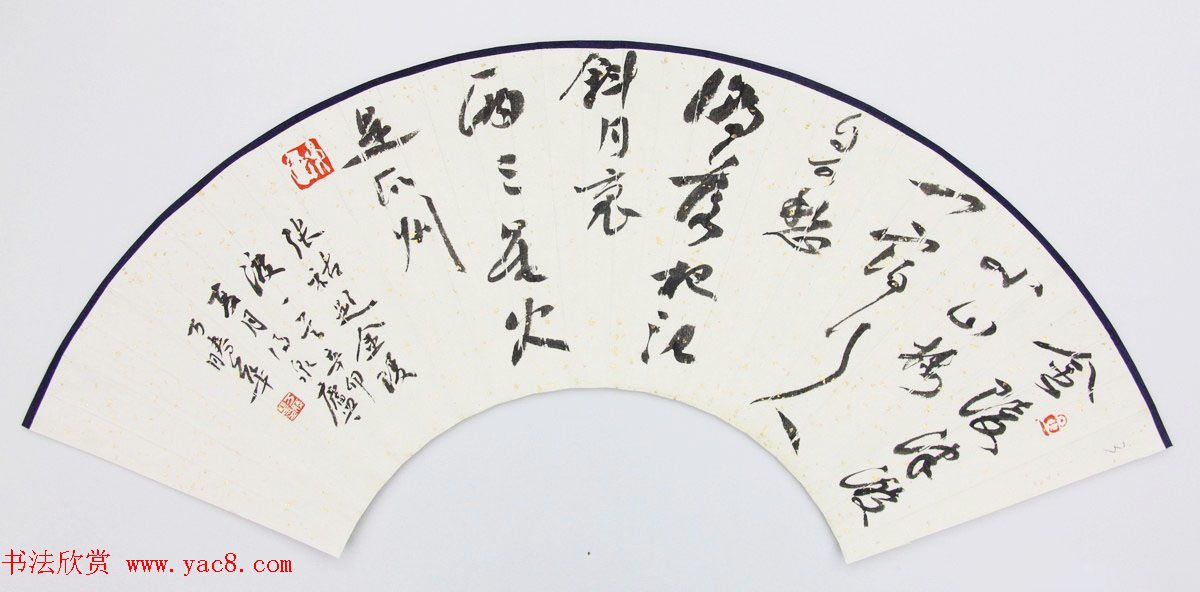 金陵津渡
小山楼
一宿行人
自可愁
潮落夜江
斜月裏
两三星火
是瓜州
张祜题金陵
渡一首辛卯
夏月
书法欣赏 www.yac8.com